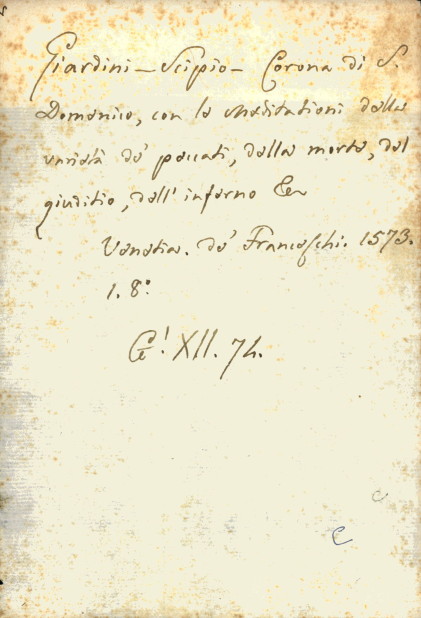 Giardini - Scipio - Corona di S.
Domenico, con le Meditationi della
varietà de' peccati, della morte, del
giuditio, dell' inferno &c
Venetia. de' Franceschi. 1573.
1. 8°
G! XII. 74.
C
C